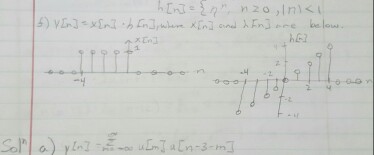 h[n] = { η^n, n≥0, |η|<1
f) y[n] = x[n] - h[n], when x[n] and h[n] are below.
x[n]
h[n]
1
-4
n
-4
2
-2
2
4
n
-4
Solⁿ a) y[n] = Σ u[m] u[n-3-m]